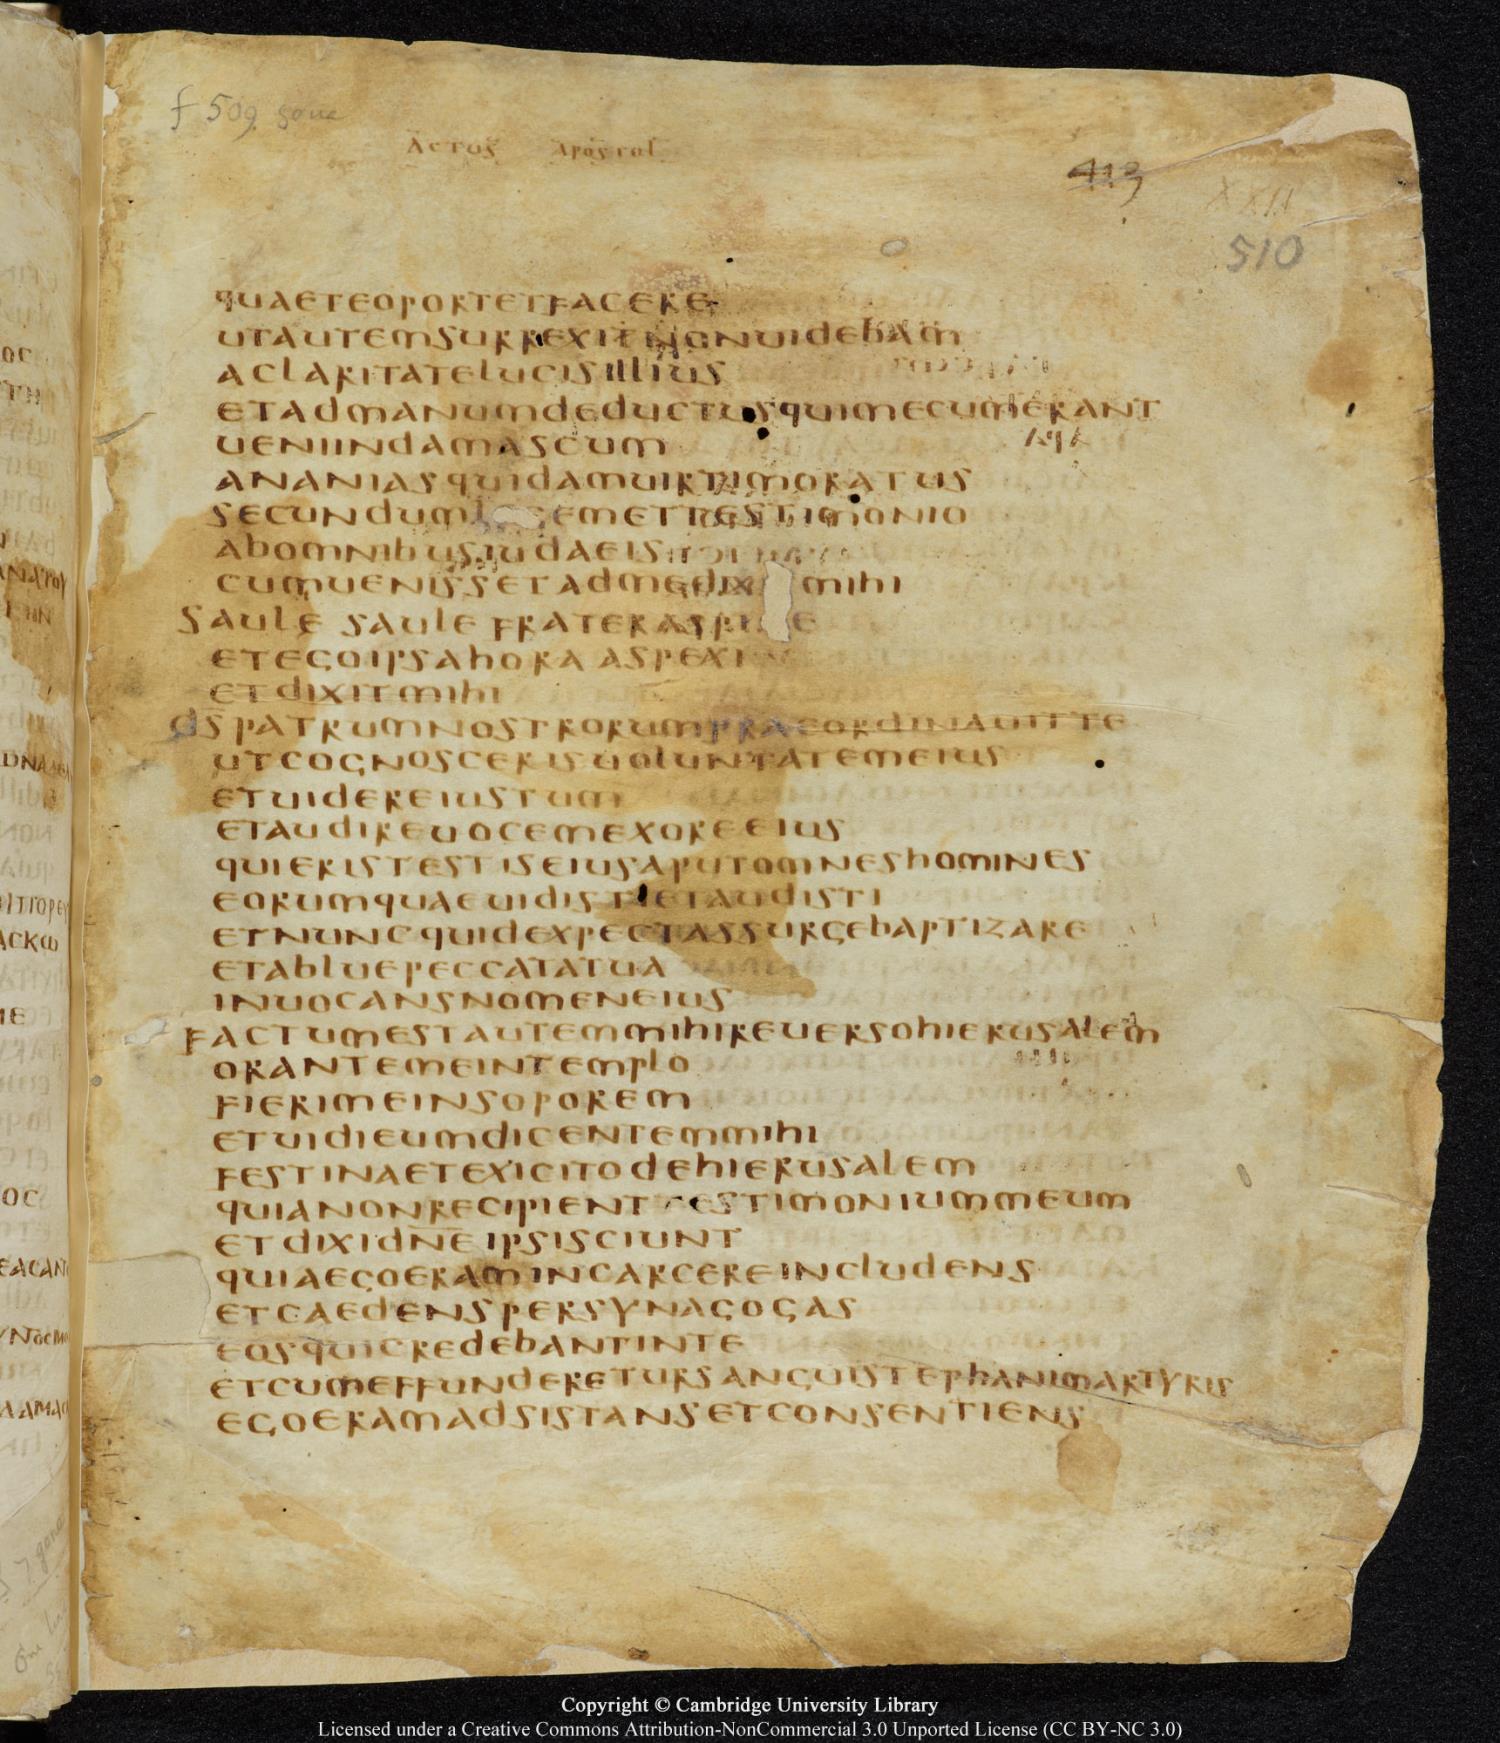 f 509 gone
ACTUS APOSTOL
413
XXII
510
QUAETEOPORTETFACERE
UTAUTEMSURREXITNONUIDEBAM
ACLARITATELUCISILLIUS
ETADMANUMDEDUCTUSQUIMECUMERANT
UENIINDAMASCUM
ANANIASQUIDAMUIRTIMORATUS
SECUNDUM EMETTESTIMONIO
ABOMNIBUSIUDAEIS
CUMUENISSETADMEDIX MIHI
SAULE SAULE FRATERASPI E
ETEGOIPSAHORA ASPEXI
ETDIXITMIHI
DS PATRUMNOSTRORUMPRAEORDINAUITTE
UTCOGNOSCERISUOLUNTATEMEIUS
ETUIDEREIUSTUM
ETAUDIREUOCEMEXOREEIUS
QUIERISTESTISEIUSAPUTOMNESHOMINES
EORUMQUAEUIDISTIETAUDISTI
ETNUNCQUIDEXPECTASSURGEBAPTIZARE
ETABLUEPECCATATUA
INUOCANSNOMENEIUS
FACTUMESTAUTEMMIHIREUERSOHIERUSALEM
ORANTEMEINTEMPLO
FIERIMEINSOPOREM
ETUIDIEUMDICENTEMMIHI
FESTINAETEXICITODEHIERUSALEM
QUIANONRECIPIENT TESTIMONIUMMEUM
ETDIXIDN̅E̅ IPSISCIUNT
QUIAEGOERAMINCARCEREINCLUDENS
ETCAEDENSPERSYNAGOGAS
EOSQUICREDEBANTINTE
ETCUMEFFUNDERETURSANGUISTEPHANIMARTYRIS
EGOERAMADSISTANSETCONSENTIENS
Copyright © Cambridge University Library
Licensed under a Creative Commons Attribution-NonCommercial 3.0 Unported License (CC BY-NC 3.0)